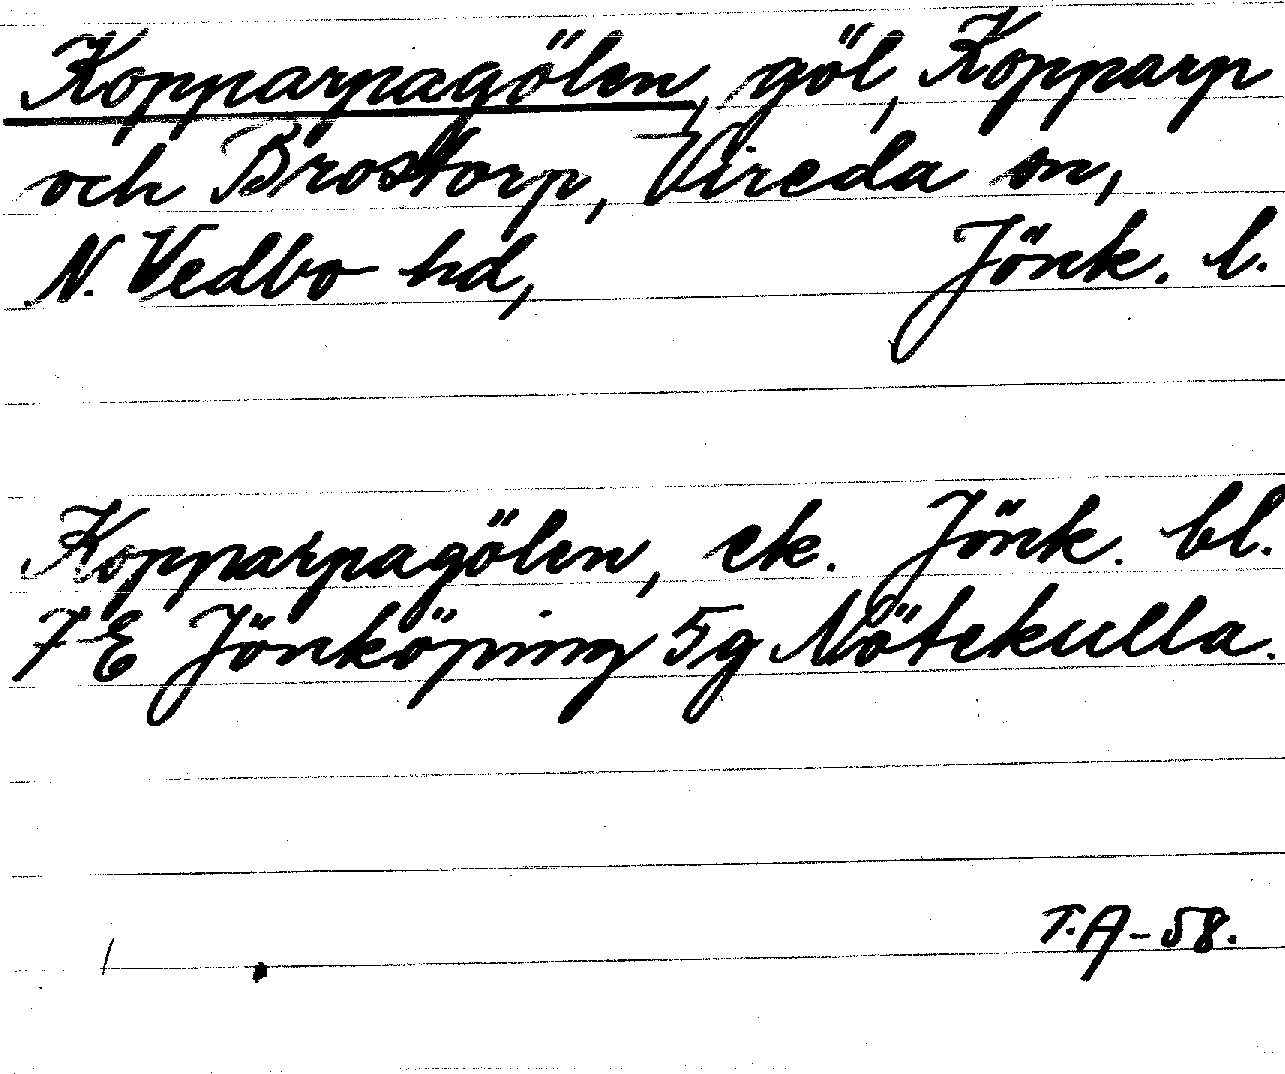 Kopparpagölen, göl, Kopparp
och Brostorp, Vireda sn,
N. Vedbo hd, Jönk. l.
Kopparpagölen, ek. Jönk. bl.
7E Jönköping 5g Nötekulla.
T.A-58.